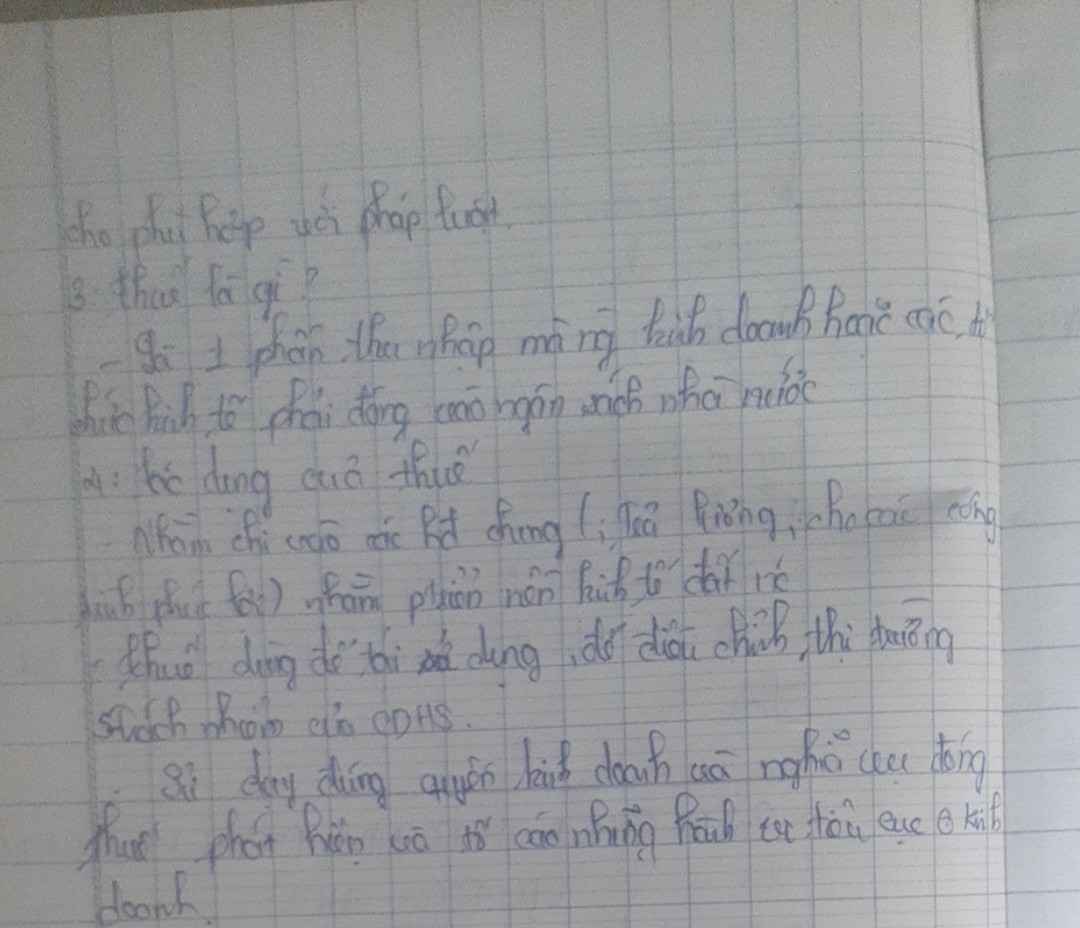 cho phù hợp với pháp luật.
3. thuế là gì?
- Là 1 phần thu nhập mà ng kinh doanh hoặc các tổ
chức kinh tế phải đóng vào ngân sách nhà nước
4: tác dụng của thuế
- Nhằm chi vào các hđ chung (; Trả lương, cho các công
phúc lợi) nhằm nền kinh tế đất
- thuế dùng để tái dụng, để điều chỉnh thị trường
5, trách nhiệm của CDHS.
- Sử dụng đúng quyền kinh doanh và nghĩa vụ đóng
thuế phát hiện và tố cáo những hành vi tiêu cực ở kinh
doanh.